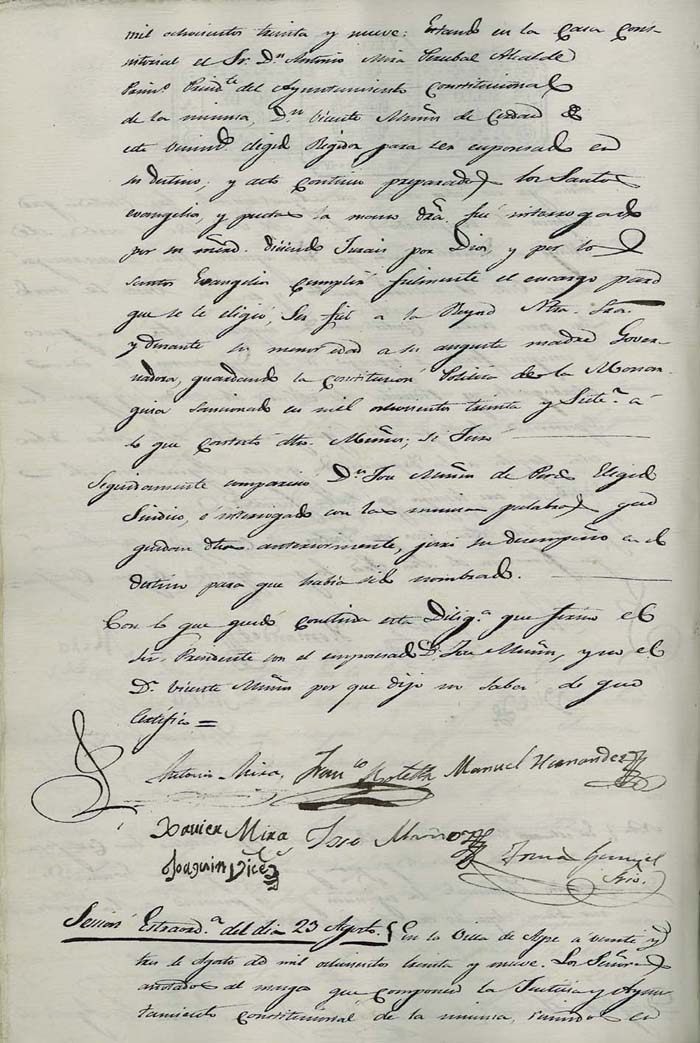 mil ochocientos treinta y nueve: Estando en la Casa Cons-
sitorial el Sr. Dn. Antonio Mira Alcalde
Primo. Presidte. del Ayuntamiento Constitucional
de la misma, Dn. Vicente de de
este elegido Regidor para ser en
su destino; y acto continuo preparados los Santos
evangelios, y puesta la mano dra. fué interrogado
por su mrd. diciendo Jurais por Dios, y por los
santos Evangelios cumplir fielmente el encargo para
que se le eligió, Ser fiel a la Reyna Ntra. Sra.
y durante su menor edad a su augusta madre Gover-
nadora, guardando la Constitucion Politica de la Monar-
quia sancionada en mil ochocientos treinta y Siete a
lo que contestó dho. Si Juro
Seguidamente compareció Dn. Jose de Elegido
Sindico, é interrogado con las mismas palabras que
quedan dhas. anteriormente, juró su desempeño en el
destino para que habia sido nombrado.
Con lo que quedó concluida esta Diliga. que firmó el
Sr. Presidente con el Dn. Jose y no el
Dn. Vicente por que dijo no saber de que
Certifico =
Antonio Mira, Franco. Manuel Hernandez
Xavier Mira Jose
Joaquin
Srio.
Sesion Estraord.a del dia 23 Agosto. En la Villa de Aspe á veinte y
tres de Agosto de mil ochocientos treinta y nueve. Los Señores
anotados al margen que componen la Justicia y Ayun-
tamiento constitucional de la misma, reunidos en